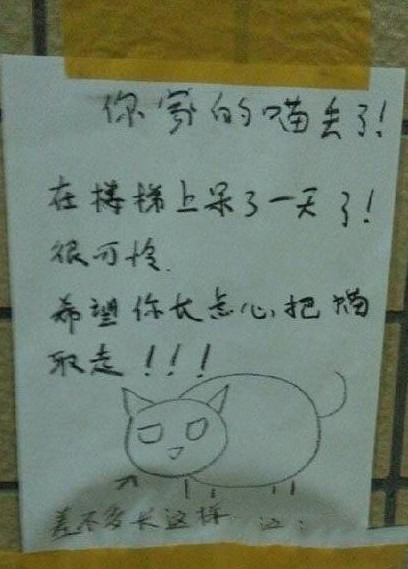 你家的喵丢了!
在楼梯上呆了一天了!
很可怜.
希望你长点心把猫
取走!!!
差不多长这样